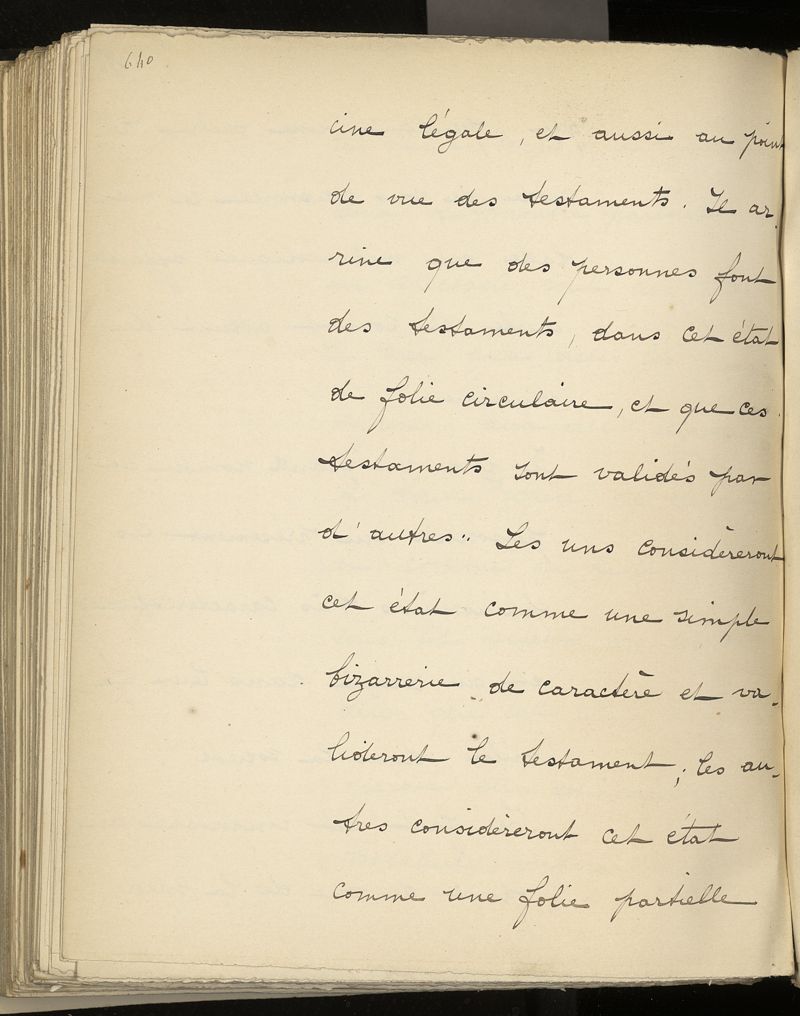 640
cine légale, et aussi au point
de vue des testaments. Il ar-
rive que des personnes font
des testaments, dans cet état
de folie circulaire, et que ces
testaments sont validés par
d'autres.. Les uns considèreront
cet état comme une simple
bizarrerie de caractère et va-
lideront le testament ; les au-
tres considèreront cet état
comme une folie partielle